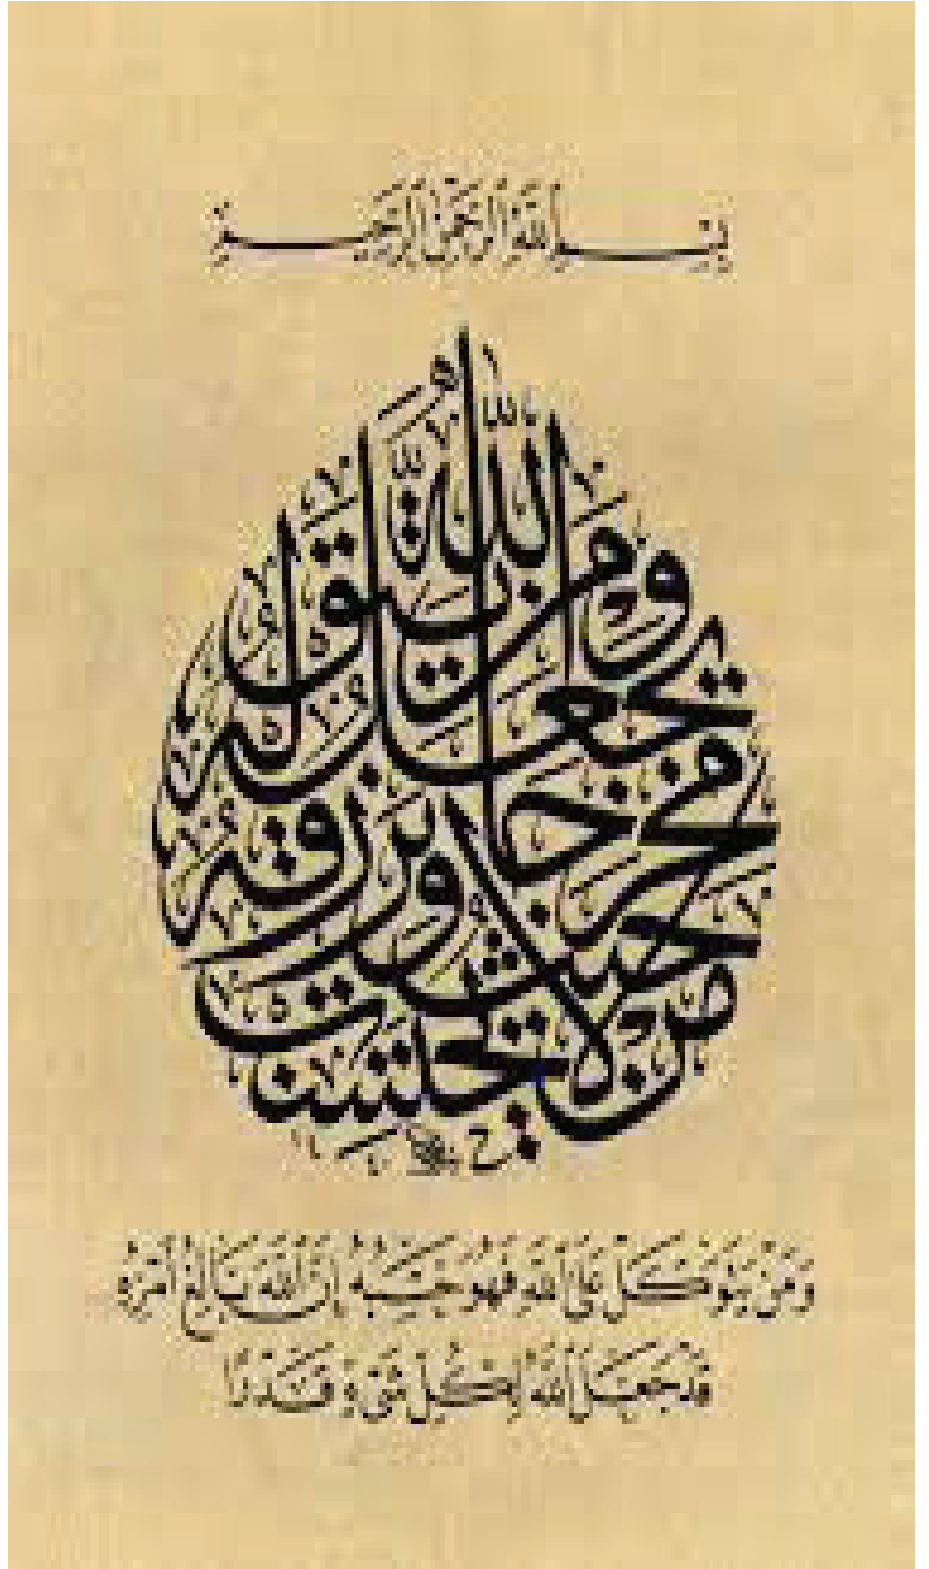 بسم الله الرحمن الرحيم
ومن يتق الله يجعل له مخرجا ويرزقه من حيث لا يحتسب
وَمَنْ يَتَوَكَّلْ عَلَى اللَّهِ فَهُوَ حَسْبُهُ إِنَّ اللَّهَ بَالِغُ أَمْرِهِ
قَدْ جَعَلَ اللَّهُ لِكُلِّ شَيْءٍ قَدْرًا